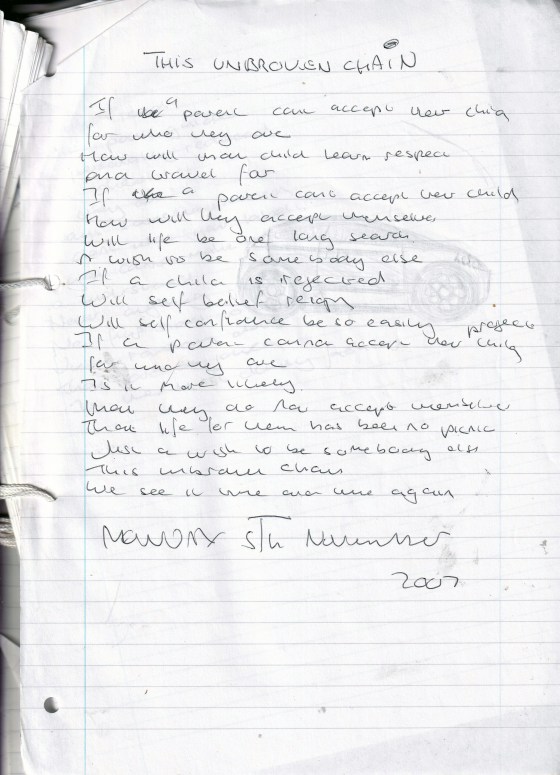 THIS UNBROKEN CHAIN
If a parent cant accept their child
for who they are
How will that child learn respect
and travel far
If a parent cant accept their child
How will they accept themselves
Will life be one long search
A wish to be somebody else
If a child is rejected
Will self belief reign
Will self confidence be so easily project
If a parent cannot accept their child
for who they are
Is it more likely
that they do not accept themselves
That life for them has been no picnic
Just a wish to be somebody else
This unbroken chain
We see it time and time again
MONDAY 5TH November
2007